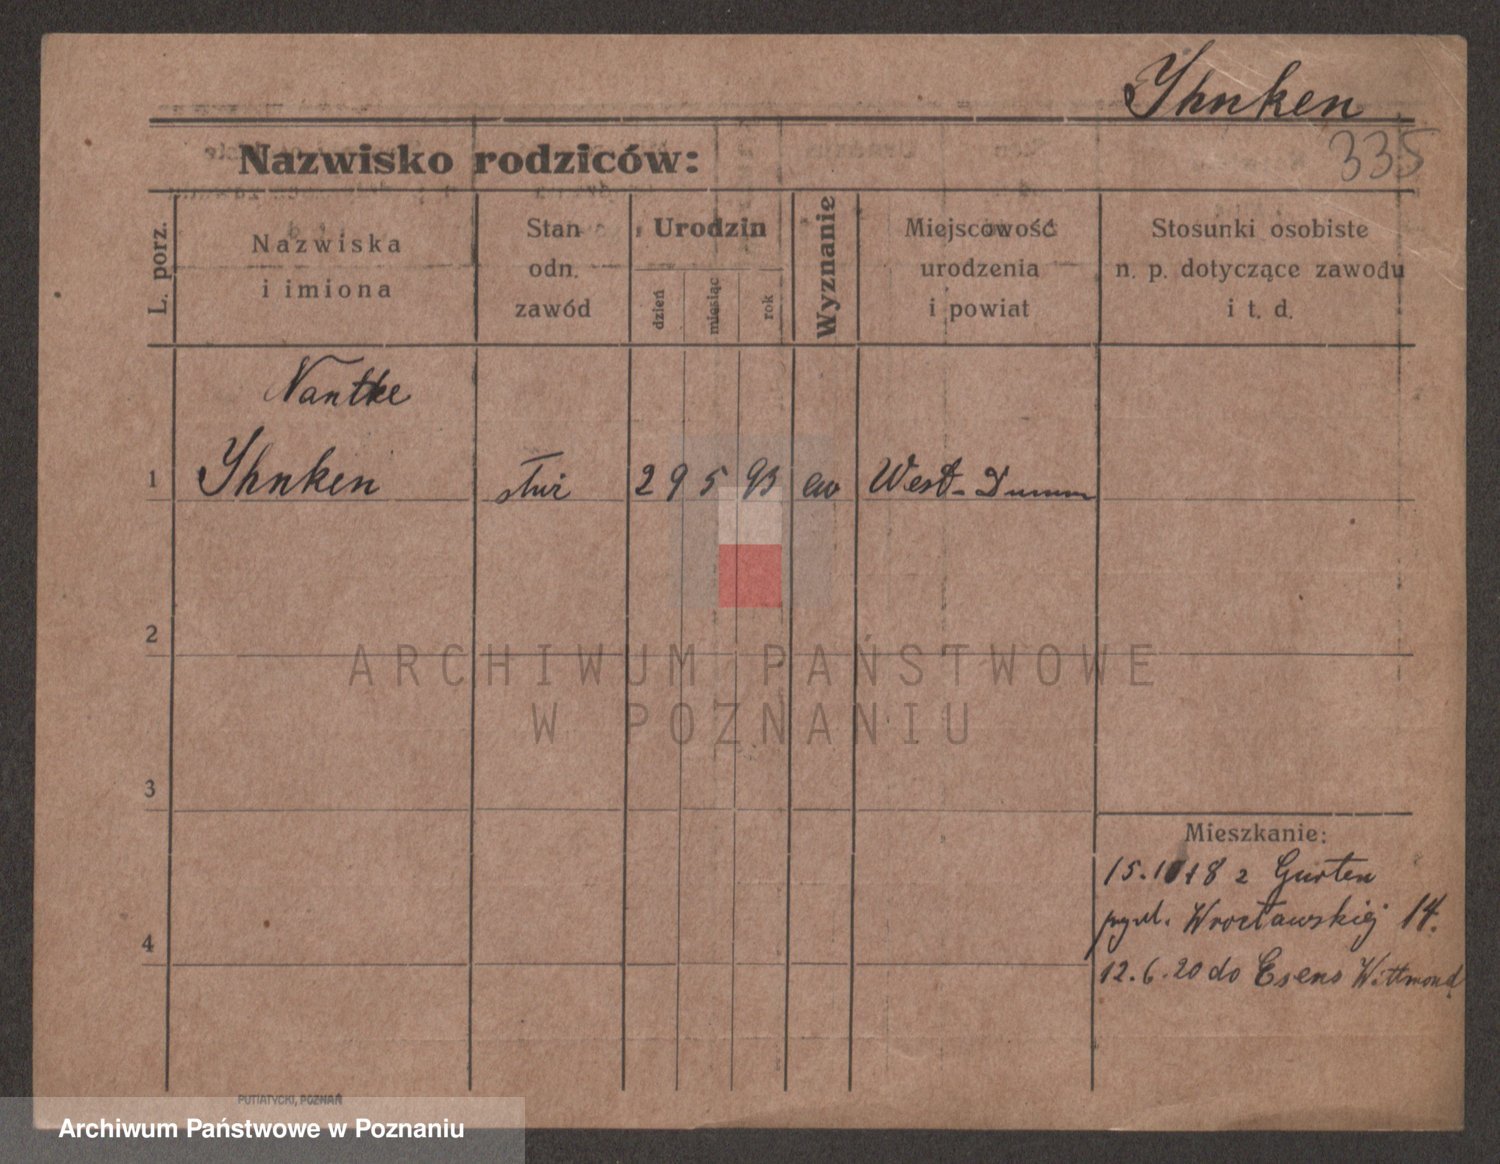 Ihnken
335
Nazwisko rodziców:
L. porz.
Nazwiska
i imiona
Stan
odn.
zawód
Urodzin
dzień
miesiąc
rok
Wyznanie
Miejscowość
urodzenia
i powiat
Stosunki osobiste
n. p. dotyczące zawodu
i t. d.
Nantke
1 Ihnken służ 29 5 93 ew West-Dunum
2
ARCHIWUM PAŃSTWOWE
W POZNANIU
3
Mieszkanie:
15.10 18 z Gurten
Wrocławskiej 14.
4
12.6.20 do Esens Wittmund
PUTIATYCKI, POZNAŃ
Archiwum Państwowe w Poznaniu